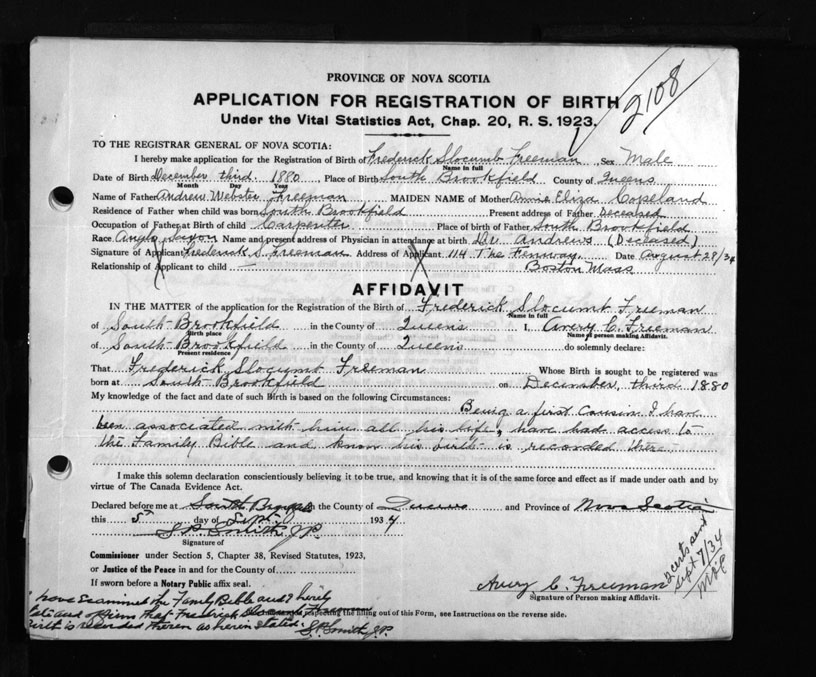 PROVINCE OF NOVA SCOTIA
2108
APPLICATION FOR REGISTRATION OF BIRTH
Under the Vital Statistics Act, Chap. 20, R. S. 1923.
TO THE REGISTRAR GENERAL OF NOVA SCOTIA:
I hereby make application for the Registration of Birth of Frederick Slocumb Freeman Sex Male
Name in full
Date of Birth December third. 1880 Place of Birth South Brookfield County of Queens
Month Day Year
Name of Father Andrew Webster Freeman MAIDEN NAME of Mother Annie Eliza Copeland
Residence of Father when child was born South Brookfield Present address of Father Deceased
Occupation of Father at Birth of child Carpenter Place of birth of Father South Brookfield
Race Anglo Saxon Name and present address of Physician in attendance at birth Dr. Andrews (Deceased)
Signature of Applicant Frederick S. Freeman Address of Applicant 114 The Fenway. Date August 28/34
Relationship of Applicant to child — Boston Mass
AFFIDAVIT
IN THE MATTER of the application for the Registration of the Birth of Frederick Slocumb Freeman
Name in full
of South Brookfield in the County of Queens I, Avery C. Freeman
Birth place Name of person making Affidavit.
of South Brookfield in the County of Queens do solemnly declare:
Present residence
That Frederick Slocumb Freeman Whose Birth is sought to be registered was
born at South Brookfield on December, third 1880
My knowledge of the fact and date of such Birth is based on the following Circumstances:
Being a first Cousin I have
been associated with him all his life, have had access to
the Family Bible and know his birth is recorded there
I make this solemn declaration conscientiously believing it to be true, and knowing that it is of the same force and effect as if made under oath and by
virtue of The Canada Evidence Act.
Declared before me at South in the County of Queens and Province of Nova Scotia
this 5th day of Sept 1934
S.P. Smith J.P.
Signature of
Commissioner under Section 5, Chapter 38, Revised Statutes, 1923,
or Justice of the Peace in and for the County of
If sworn before a Notary Public affix seal.
Avery C. Freeman
Signature of Person making Affidavit.
2 certs sent
Sept 7/34
I have Examined the Family Bible and hereby
state and affirm that Frederick Slocumb Freeman
respecting the filling out of this Form, see Instructions on the reverse side.
Birth is recorded therein as herein stated. S.P. Smith J.P.